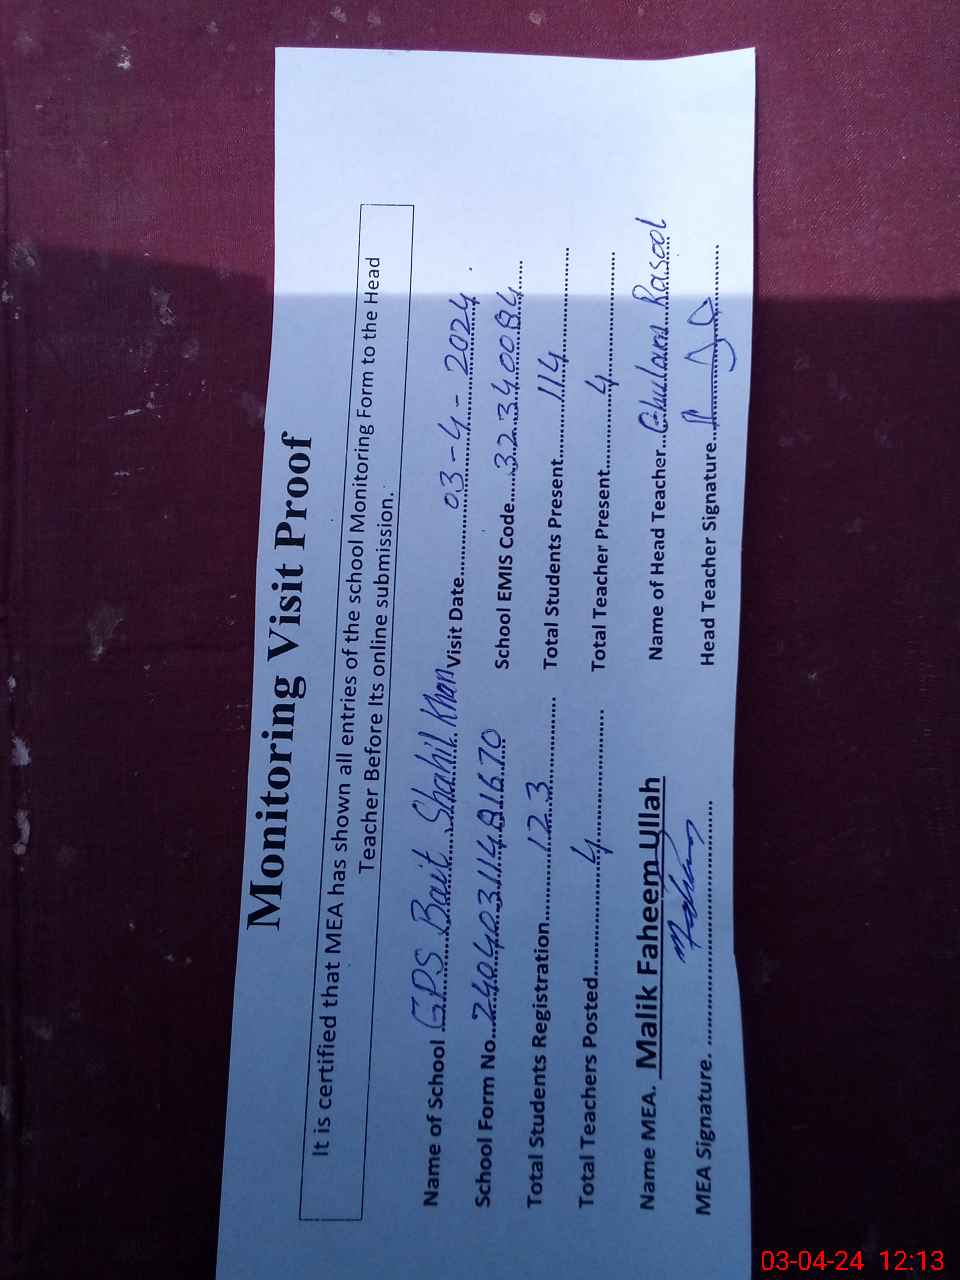 Monitoring Visit Proof
It is certified that MEA has shown all entries of the school Monitoring Form to the Head
Teacher Before Its online submission.
Name of School GPS Bait Shahil Khan Visit Date 03-4-2024
School Form No. 24040311481670 School EMIS Code 32340084
Total Students Registration 123 Total Students Present 114
Total Teachers Posted 4 Total Teacher Present 4
Name MEA. Malik Faheem Ullah Name of Head Teacher Ghulam Rasool
MEA Signature. Head Teacher Signature
03-04-24 12:13